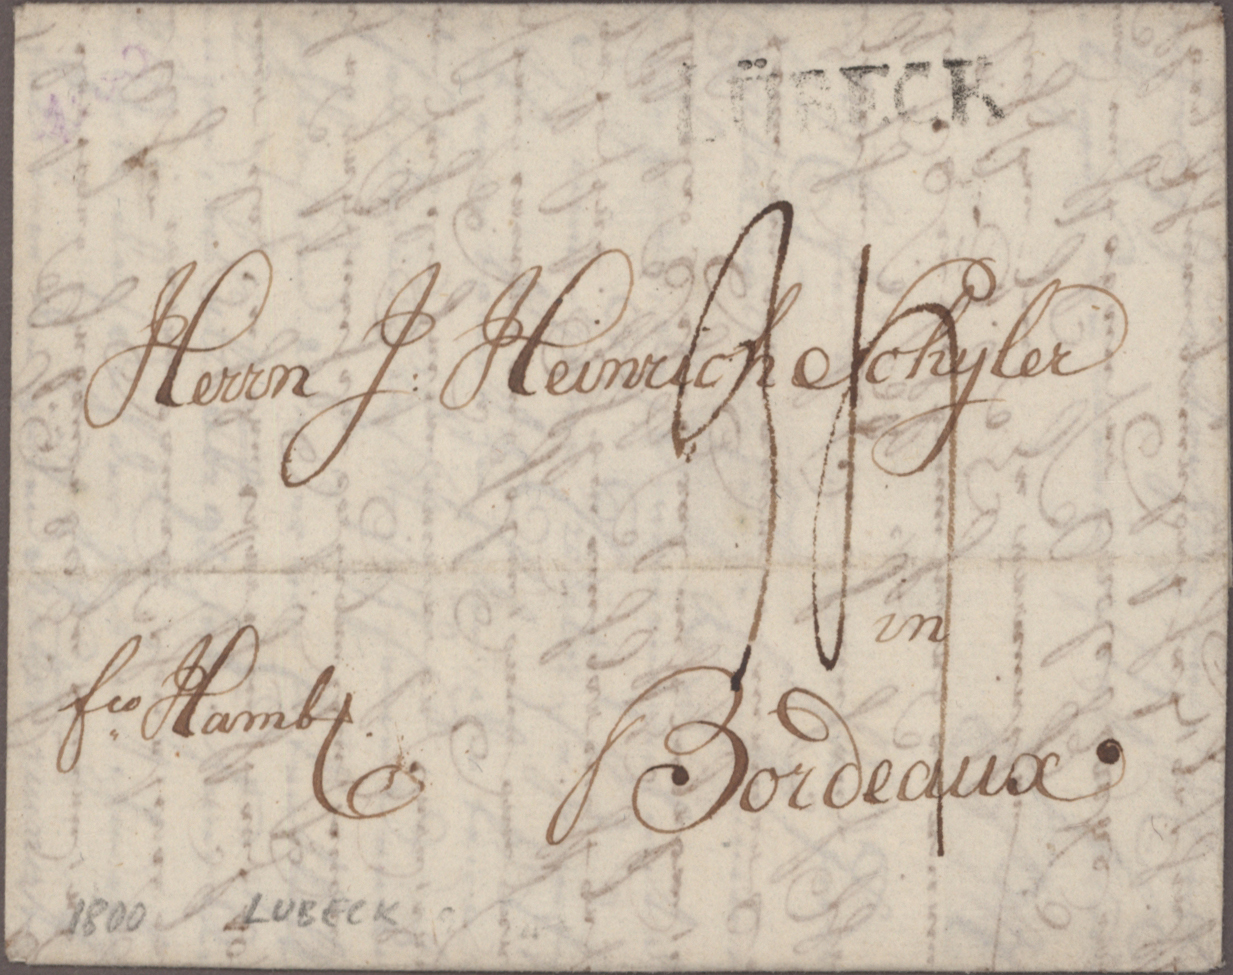 LÜBECK
Herrn J: Heinrich Schÿler
in
fco Hambg
Bordeaux.
1800 LUBECK